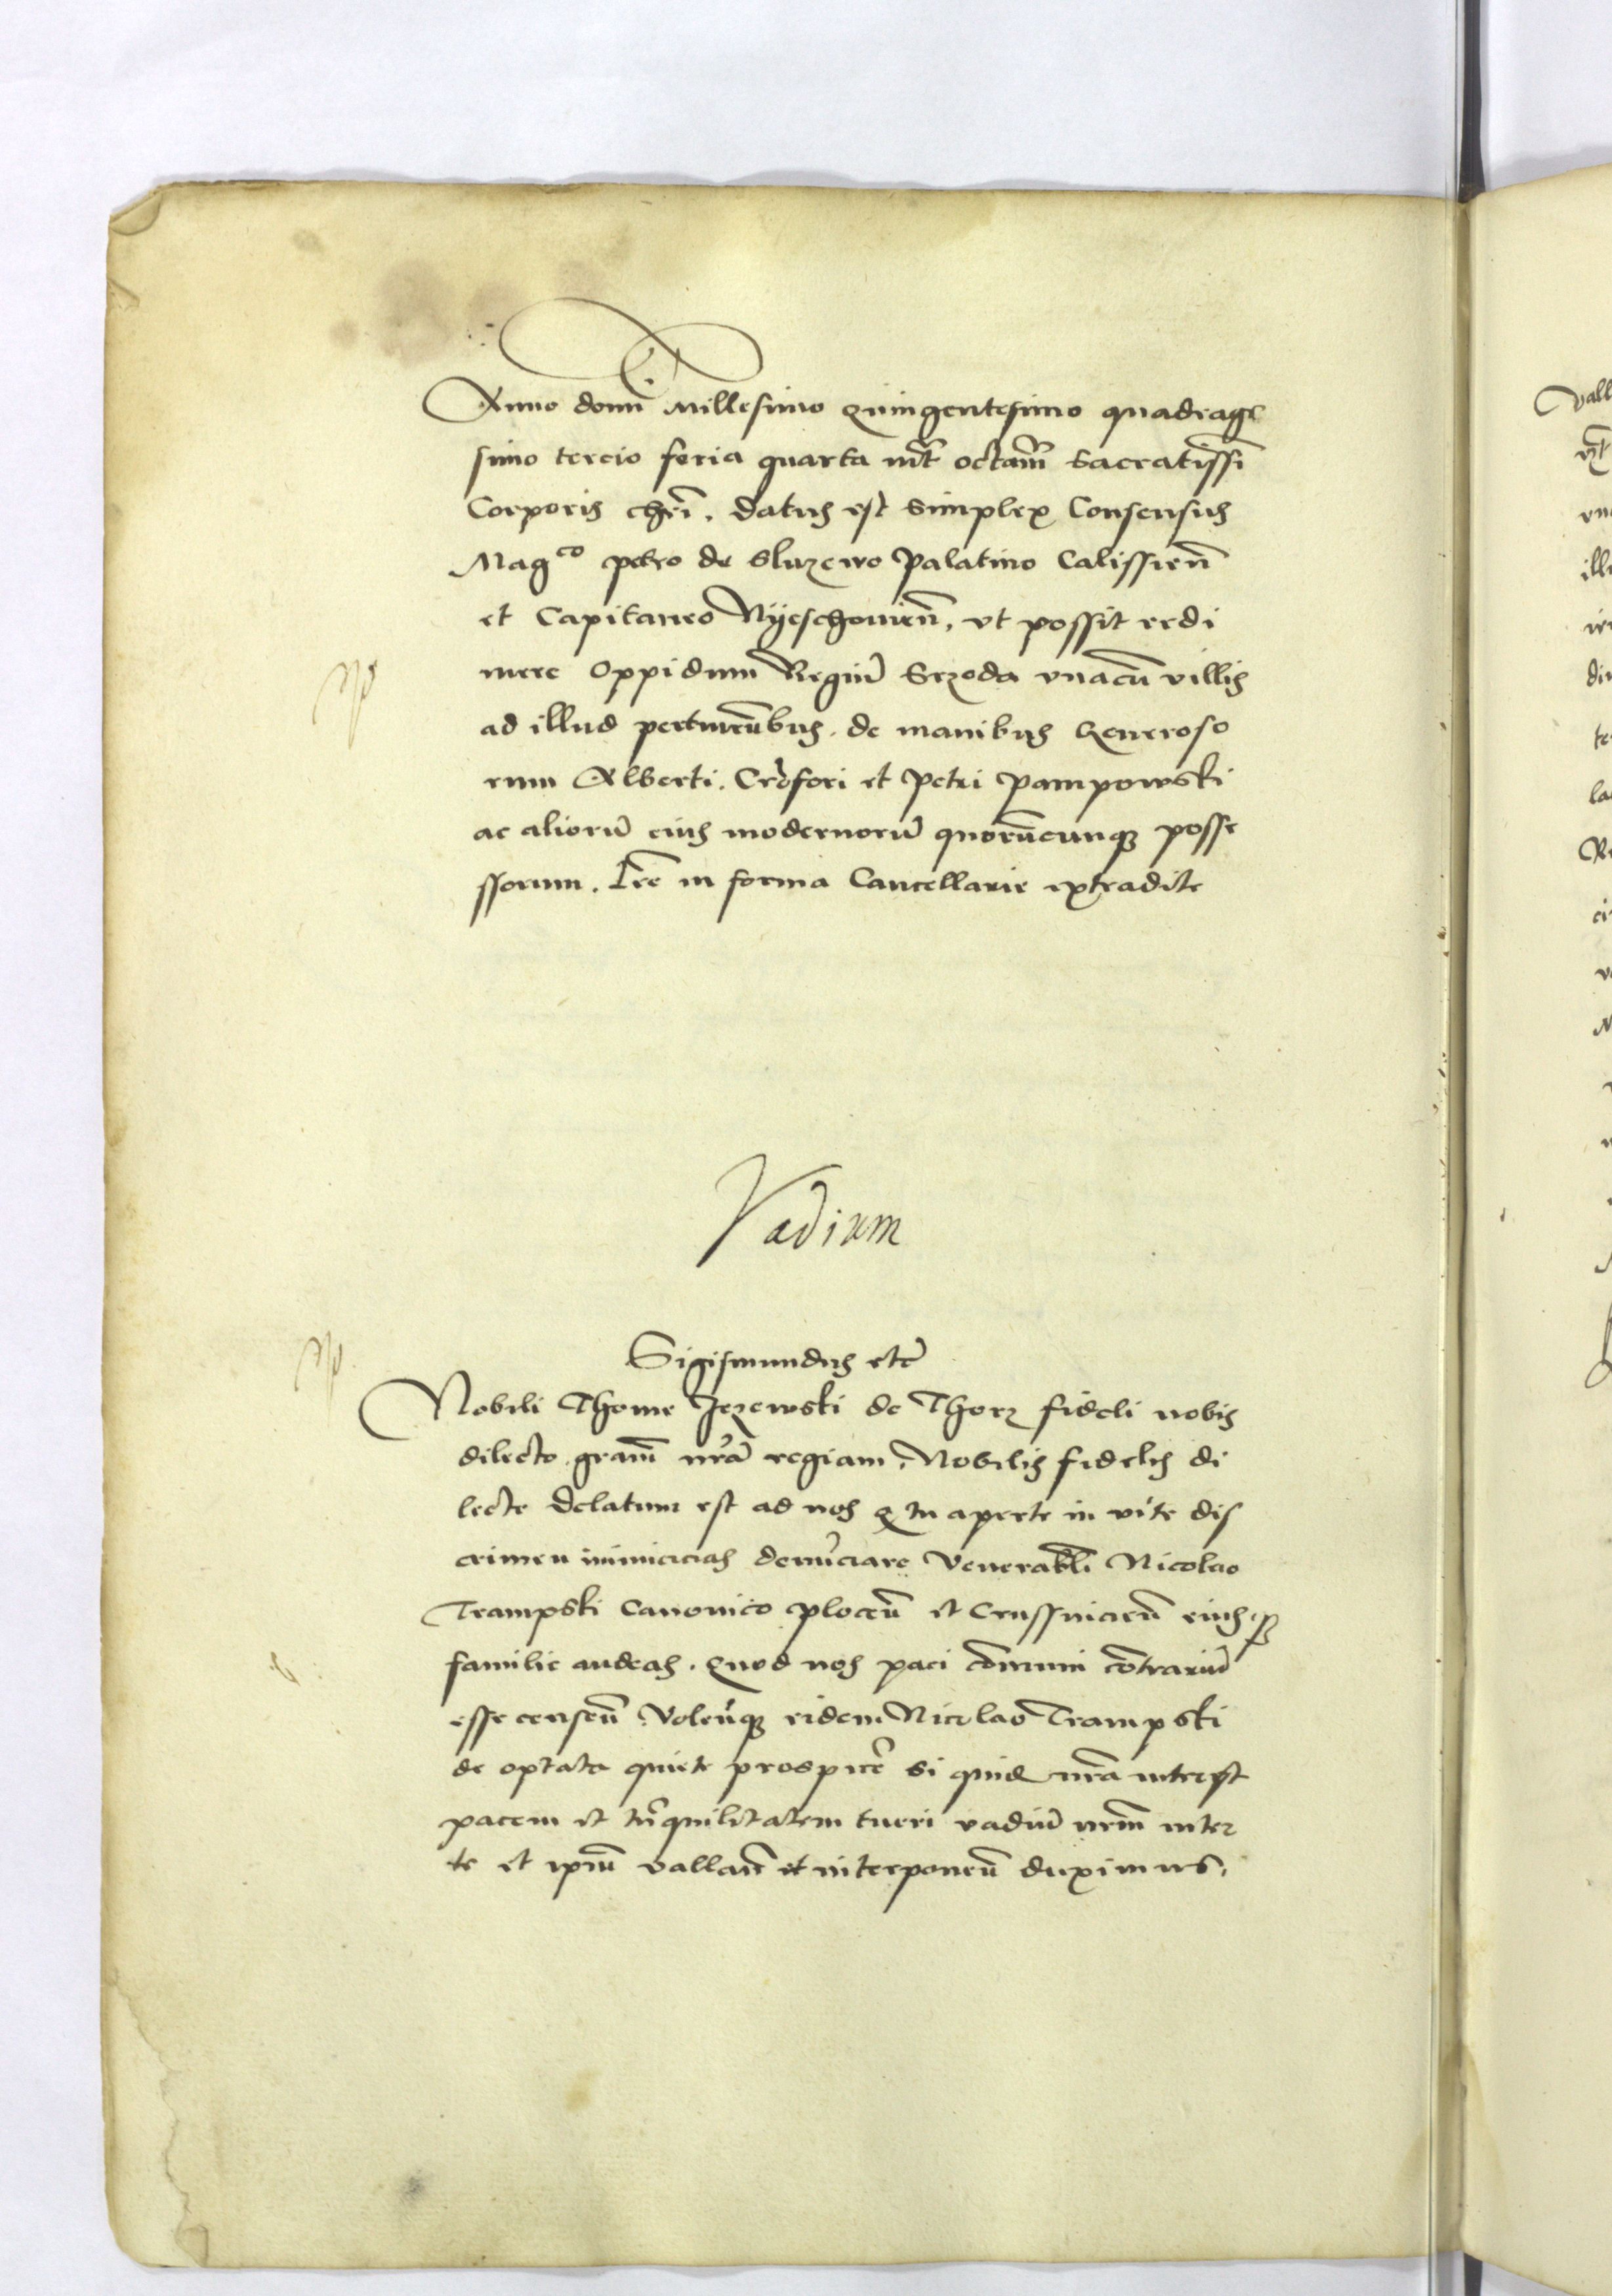 Anno domī Millesimo Quingentesimo quadrage
simo tercio feria quarta inf̄ octauā Sacratissī
Corporis chr̄i. datus est Simplex Consensus
Magco petro de Sluzewo Palatino Calissieñ
et Capitaneo Nyeschowieñ, vt possit redi
mere Oppidum Regiū Srzoda vnacū villis
ad illud pertineñbus. de manibus Generoso
rum Alberti. Cr̄ofori et Petri Pampowski
ac aliorū eius modernorū quorūcunq3 posse
ssorum. Lr̄e in forma Cancellarie extradite
Vadium
Sigismundus etc̄
Nobili Thome Jezewski de Thorz fideli nobis
dilecto. gram̄ nr̄ā regiam. Nobilis fidelis di
lecte Delatum est ad nos q tu aperte in vite dis
crimen inimicicias denūciare Venerabli Nicolao
Trampski Canonico ploceñ et Crussuicieñ eiusq3
familie audeas. Quod nos paci cōmuni cōtrariū
esse censeñ. Voleñq3 eidem Nicolao Trampski
de optata quiete prospicer̄ si quid nr̄a interest
pacem et tr̄quilitatem tueri vadiū nr̄m inter
te et ip̄m vallañ et interponeñ duximus.